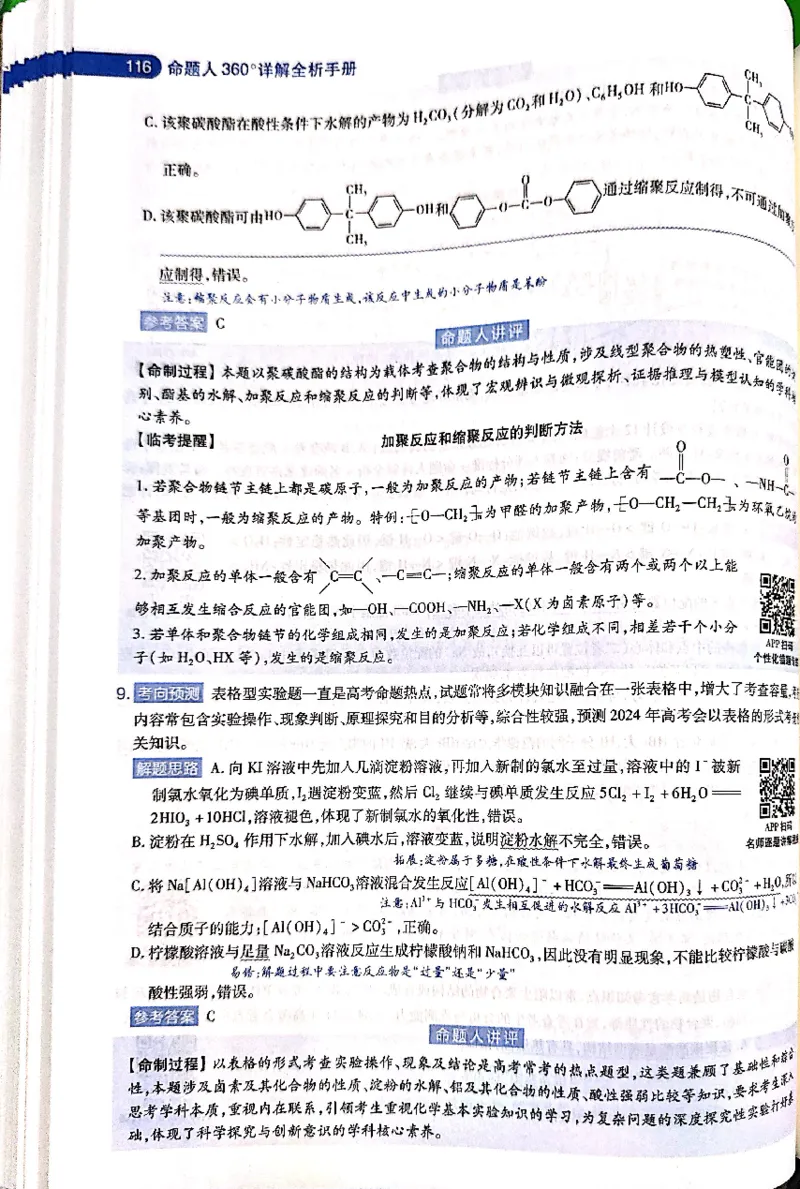 116 命题人360°详解全析手册
C. 该聚碳酸酯在酸性条件下水解的产物为H₂CO₃(分解为CO₂和H₂O)、C₆H₅OH 和HO- CH₃ C CH₃
正确。
D. 该聚碳酸酯可由HO- CH₃ C CH₃ -OH和 -O-C-O- O 通过缩聚反应制得,不可通过加聚
应制得,错误。
注意:缩聚反应会有小分子物质生成,该反应中生成的小分子物质是苯酚
参考答案 C
命题人讲评
【命制过程】本题以聚碳酸酯的结构为载体考查聚合物的结构与性质,涉及线型聚合物的热塑性、官能团的
别、酯基的水解、加聚反应和缩聚反应的判断等,体现了宏观辨识与微观探析、证据推理与模型认知的学科
心素养。
【临考提醒】 加聚反应和缩聚反应的判断方法
1. 若聚合物链节主链上都是碳原子,一般为加聚反应的产物;若链节主链上含有 —C(=O)—O— 、—NH—C(=O)
等基团时,一般为缩聚反应的产物。特例:⁅O—CH₂⁆ₙ为甲醛的加聚产物,⁅O—CH₂—CH₂⁆ₙ为环氧乙烷的
加聚产物。
2. 加聚反应的单体一般含有 C=C 、—C≡C—;缩聚反应的单体一般含有两个或两个以上能
够相互发生缩合反应的官能团,如—OH、—COOH、—NH₂、—X(X 为卤素原子)等。
3. 若单体和聚合物链节的化学组成相同,发生的是加聚反应;若化学组成不同,相差若干个小分
子(如 H₂O、HX 等),发生的是缩聚反应。
APP扫码
个性化错题
9. 考向预测 表格型实验题一直是高考命题热点,试题常将多模块知识融合在一张表格中,增大了考查容量,
内容常包含实验操作、现象判断、原理探究和目的分析等,综合性较强,预测 2024 年高考会以表格的形式考
关知识。
解题思路 A. 向 KI 溶液中先加入几滴淀粉溶液,再加入新制的氯水至过量,溶液中的 I⁻ 被新
制氯水氧化为碘单质,I₂遇淀粉变蓝,然后 Cl₂ 继续与碘单质发生反应 5Cl₂ + I₂ + 6H₂O ══
2HIO₃ + 10HCl,溶液褪色,体现了新制氯水的氧化性,错误。
APP扫码
名师逐题讲解
B. 淀粉在 H₂SO₄ 作用下水解,加入碘水后,溶液变蓝,说明淀粉水解不完全,错误。
拓展:淀粉属于多糖,在酸性条件下水解最终生成葡萄糖
C. 将 Na[Al(OH)₄]溶液与 NaHCO₃溶液混合发生反应[Al(OH)₄]⁻ + HCO₃⁻ ══ Al(OH)₃↓ + CO₃²⁻ + H₂O,所以
注意:Al³⁺与 HCO₃⁻发生相互促进的水解反应 Al³⁺ +3HCO₃⁻ ══ Al(OH)₃↓+3CO
结合质子的能力:[Al(OH)₄]⁻ > CO₃²⁻,正确。
D. 柠檬酸溶液与足量 Na₂CO₃溶液反应生成柠檬酸钠和 NaHCO₃,因此没有明显现象,不能比较柠檬酸与碳酸
易错:解题过程中要注意反应物是“过量”还是“少量”
酸性强弱,错误。
参考答案 C
命题人讲评
【命制过程】以表格的形式考查实验操作、现象及结论是高考常考的热点题型,这类题兼顾了基础性和综合
性,本题涉及卤素及其化合物的性质、淀粉的水解、铝及其化合物的性质、酸性强弱比较等知识,要求考生深入
思考学科本质,重视内在联系,引领考生重视化学基本实验知识的学习,为复杂问题的深度探究性实验打好基
础,体现了科学探究与创新意识的学科核心素养。